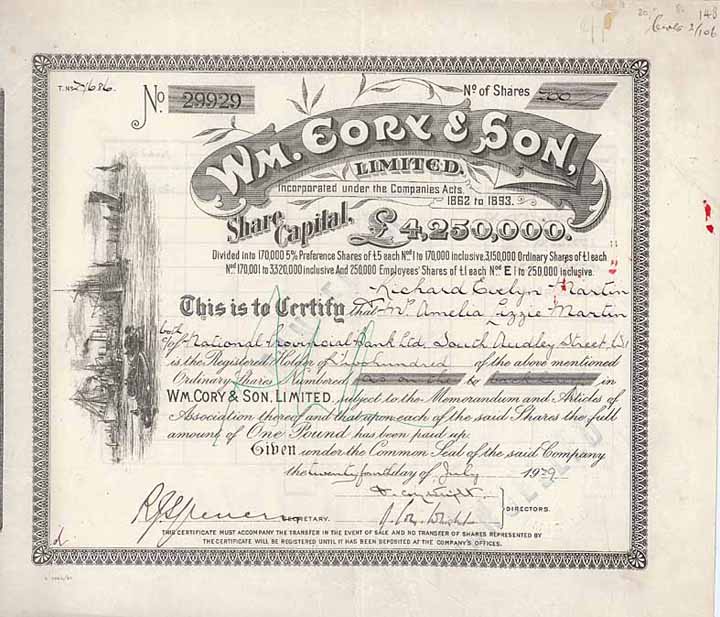 148
T. No 21686.
No. 29929
No of Shares 200
WM. CORY & SON,
LIMITED.
Incorporated under the Companies Acts.
1862 to 1893.
Share Capital, £4,250,000.
Divided into 170,000 5% Preference Shares of £5 each Nos 1 to 170,000 inclusive, 3,150,000 Ordinary Shares of £1 each
Nos 170,001 to 3,320,000 inclusive And 250,000 Employees' Shares of £1 each Nos E 1 to 250,000 inclusive.
Richard Evelyn Martin
This is to Certify that Amelia Lizzie Martin
both
c/o National Provincial Bank Ltd. South Audley Street, W1
is the Registered Holder of Two hundred of the above mentioned
Ordinary Shares numbered as on the to back in
WM. CORY & SON, LIMITED. subject to the Memorandum and Articles of
Association thereof and that upon each of the said Shares the full
amount of One Pound has been paid up.
Given under the Common Seal of the said Company
the twenty fourth day of July 1929
DIRECTORS.
SECRETARY.
THIS CERTIFICATE MUST ACCOMPANY THE TRANSFER IN THE EVENT OF SALE AND NO TRANSFER OF SHARES REPRESENTED BY
THE CERTIFICATE WILL BE REGISTERED UNTIL IT HAS BEEN DEPOSITED AT THE COMPANY'S OFFICES.